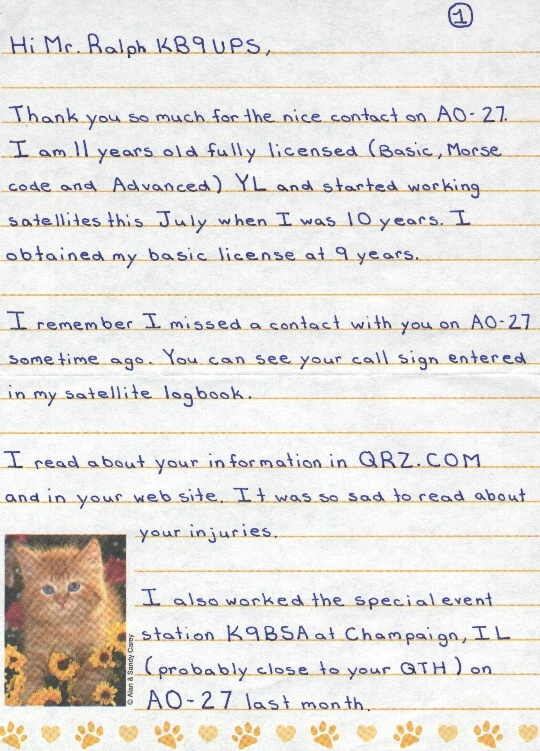 1
Hi Mr. Ralph KB9UPS,
Thank you so much for the nice contact on AO-27.
I am 11 years old fully licensed (Basic, Morse
code and Advanced) YL and started working
satellites this July when I was 10 years. I
obtained my basic license at 9 years.
I remember I missed a contact with you on AO-27
sometime ago. You can see your call sign entered
in my satellite logbook.
I read about your information in QRZ.COM
and in your web site. It was so sad to read about
your injuries.
I also worked the special event
station K9BSA at Champaign, IL
(probably close to your QTH) on
AO-27 last month.
© Alan & Sandy Carey